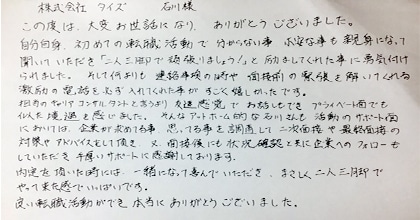 株式会社 ワイズ　石川様
この度は、大変お世話になり、ありがとうございました。
自分自身、初めての転職活動で分からない事 不安な事も親身になって
聞いていただき「二人三脚で頑張りましょう!」と励ましてくれた事に勇気付け
られました。そして何よりも 連絡事項の時や 面接前の緊張を解いてくれる
激励の電話を必ず入れてくれた事が すごく嬉しかったです。
担当のキャリアコンサルタントと言うより 友達感覚で お話しもでき プライベート面でも
似た境遇を感じました。そんなアットホーム的な石川さんも 活動のサポート面
においては、企業が求める事、思ってる事を調査して二次面接や最終面接の
対策やアドバイスをして頂き、又、面接後にも状況確認と共に企業へのフォローも
していただき 手厚いサポートに感謝しております。
内定を頂いた時には、一緒になって喜んでいただき、まさしく二人三脚で
やって来た感でいっぱいです。
良い転職活動ができ 本当に ありがとうございました。